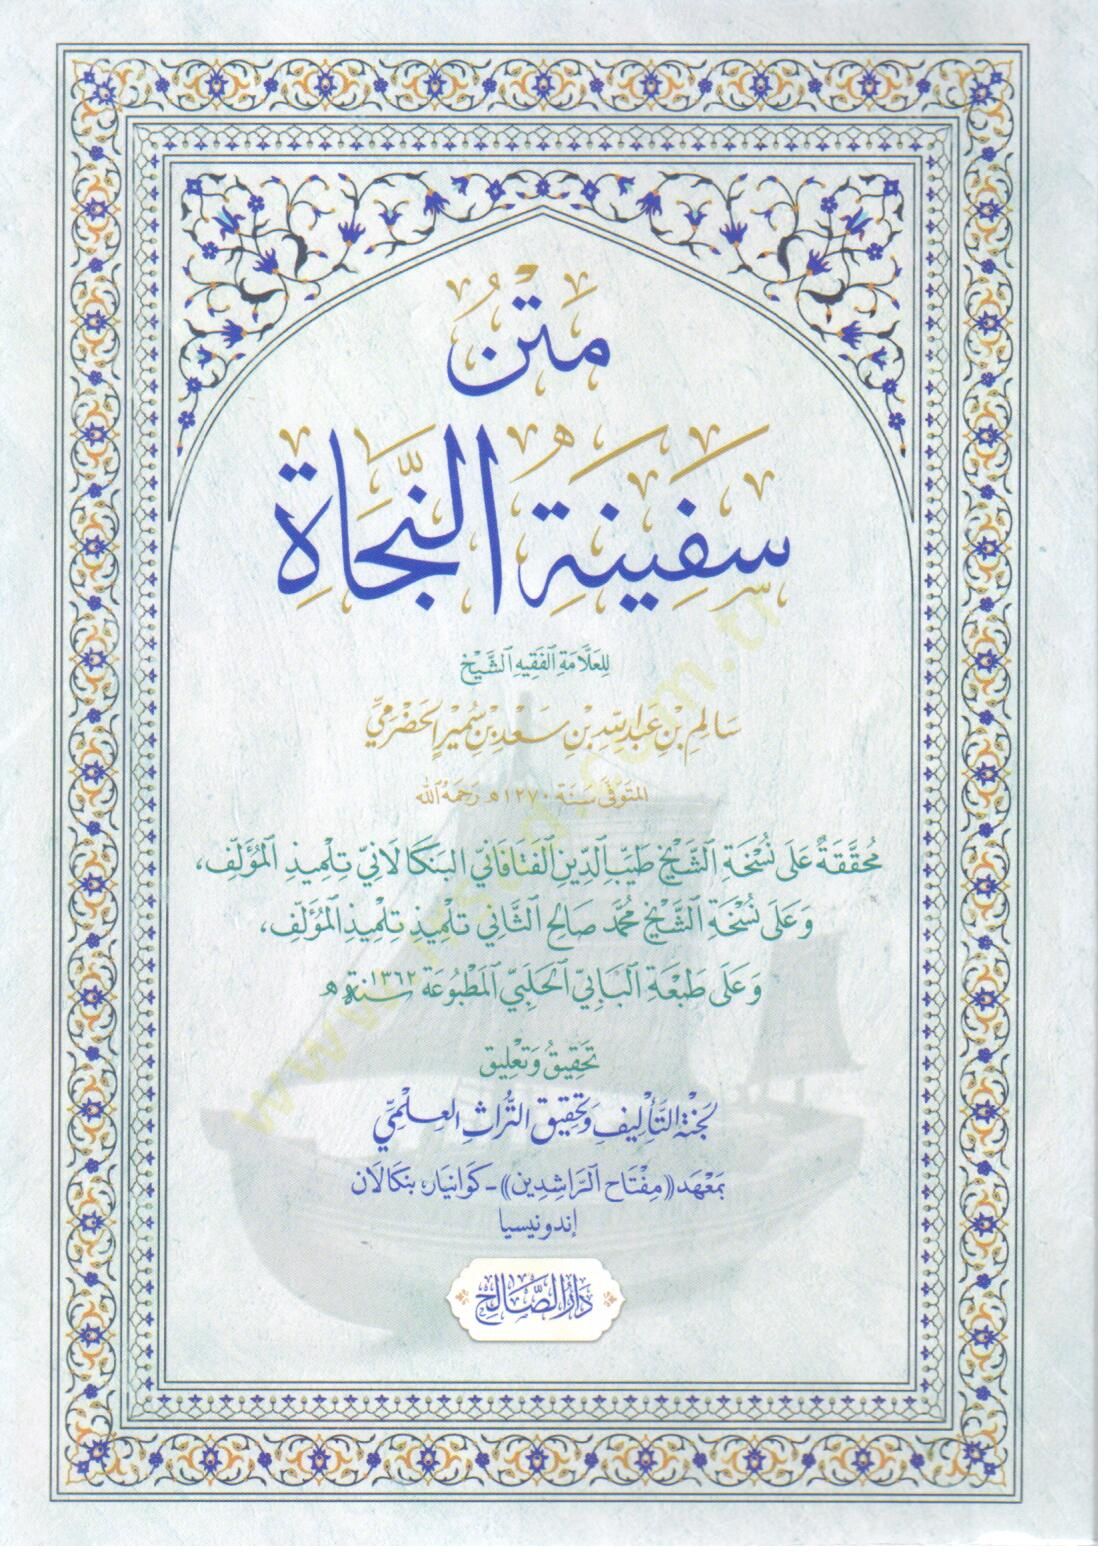 مَتْنُ
سَفِينَةِ النَّجَاةِ
لِلعَلَّامَةِ الفَقِيهِ الشَّيْخِ
سَالِم بْنِ عَبْدِ اللَّهِ بْنِ سَعْدِ بْنِ سُمَيْرٍ الحَضْرَمِيِّ
المتوفى سَنَة ١٢٧٠هـ رَحِمَهُ الله
مُحَقَّقَةٌ عَلَى نُسْخَةِ الشَّيْخِ طَيِّبِ الدِّينِ الفَتَافَانِي البَنْكَالَانِي تِلْمِيذِ المُؤَلِّفِ،
وَعَلَى نُسْخَةِ الشَّيْخِ مُحَمَّد صَالِح الثَّانِي تِلْمِيذِ تِلْمِيذِ المُؤَلِّفِ،
وَعَلَى طَبْعَةِ البَابِيِّ الحَلَبِيِّ المَطْبُوعَة سنة ١٣٦٢هـ
تَحْقِيقُ وَتَعْلِيق
لَجْنَةُ التَّأْلِيفِ وَتَحْقِيقِ التُّرَاثِ العِلْمِيِّ
بِمَعْهَد «مِفْتَاح الرَّاشِدِين» - كَوَانْيَار، بنكَالَان
إندونيسيا
دَارُ الصَّالِح